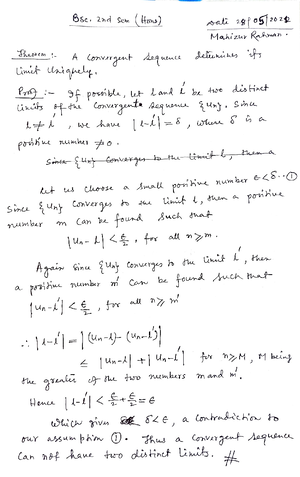 Bsc. 2nd sem (Hons)
Date 28/05/2022
Mahizur Rahman.
Theorem :- A Convergent Sequence determines its
limit Uniquely.
Proof :- If possible, let l and l' be two distinct
limits of the Convergent Sequence {Un}. Since
l ≠ l', we have |l-l'| = δ, where δ is a
positive number ≠ 0.
Since {Un} Converges to the limit l, then a
Let us choose a small positive number ε < δ ... ①
Since {Un} Converges to the limit l, then a positive
number m Can be found Such that
|Un - l| < ε/2, for all n ≥ m.
Again Since {Un} Converges to the limit l', then
a positive number m' Can be found such that
|Un - l'| < ε/2, for all n ≥ m'
∴ |l-l'| = |(Un-l) - (Un-l')|
≤ |Un-l| + |Un-l'| for n ≥ M, M being
the greater of the two numbers m and m'.
Hence |l-l'| < ε/2 + ε/2 = ε
which gives δ < ε, a contradiction to
our assumption ①. Thus a Convergent sequence
Can not have two distinct limits. #